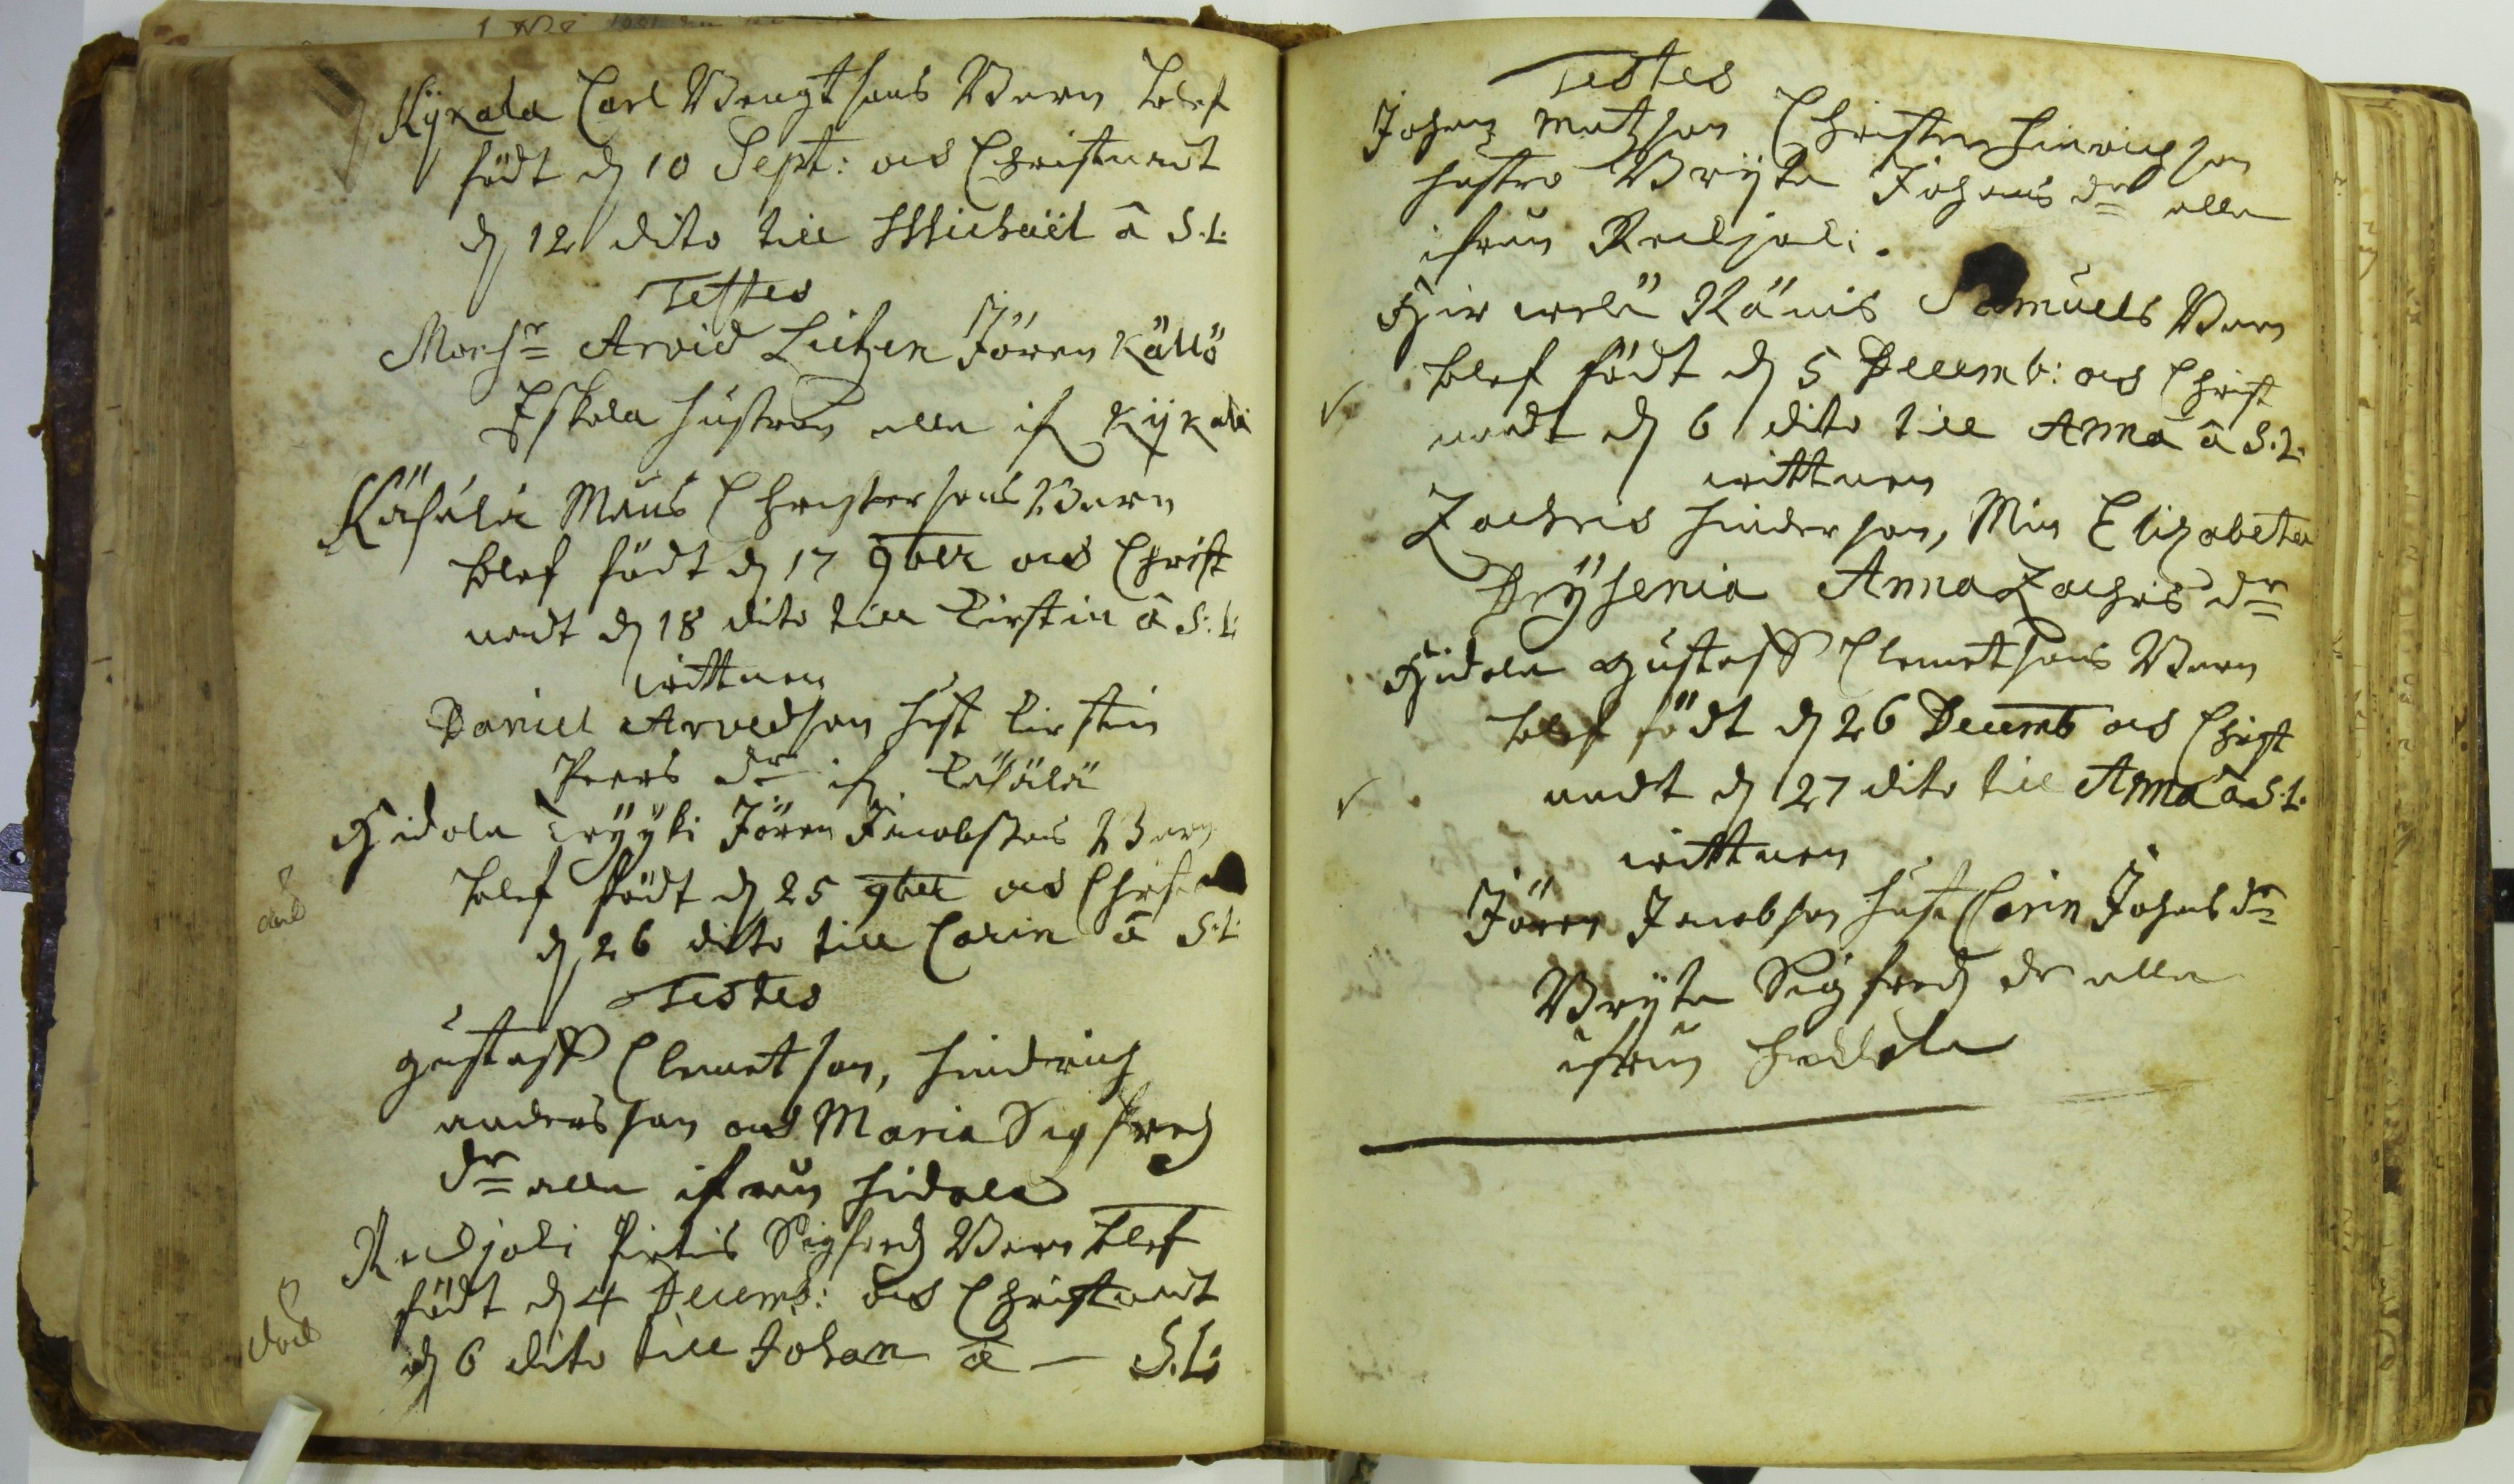 Kÿkala Carl Bengtsons Barn blef
födt dn 10 Sept: och Christnadt
dn 12 dito till Michaël â S.L:
Testes
Monsr Arvid Lietzen Jören Källö
Eskola hustron alla if Kÿkala
Käsälä Mâns Christersons Barn
blef födt dn 17 9ber och Christ
nadt dn 18 dito till Kirstin â S:L:
wittnen
Daniel Arvedson hust Kirstin
Peers dr if Käsälä
Hidola Jören Jacobssons Barn
blef födt dn 25 9ber och Christ
dn 26 dito till Carin â S:L:
död
Testes
Gustaff Clemetson, Hindrich
andersson och Maria Sigfredz
dr alla ifrån Hidola
Redjoki Pertis Sigfredz Barn blef
födt dn 4 Decemb: och Christnadt
dn 6 dito till Johan â — S.L:
död
Testes
Johan Matzson Christer Hinrichson
hustro Bryta Johans dr alla
ifrån Redjoki.
Samuels Barn
blef födt dn 5 Decemb: och Christ
nadt dn 6 dito till Anna â S.L.
wittnen
Zachris Hinderson, Min Elizabeta
Anna Zachris dr
Hidola Gustaff Clemetsons Barn
blef födt dn 26 Decemb och Christ
nadt dn 27 dito till Anna â S.L.
wittnen
Jören Jacobson hust Carin Johans dr
Bryta Sigfredz dr alla
ifrån Hidola